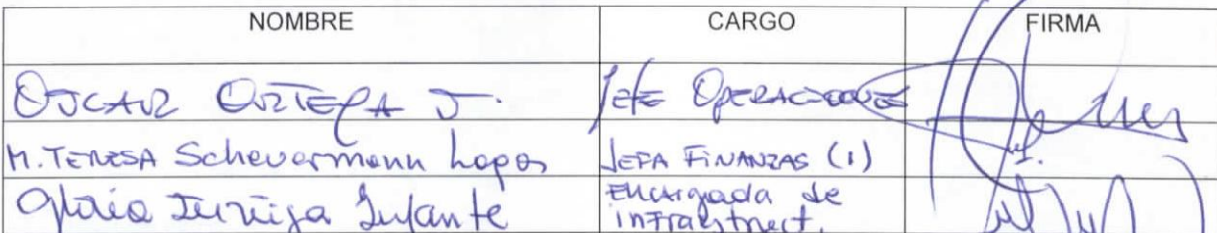 NOMBRE CARGO FIRMA
OSCAR ORTEGA J. Jefe OPERACIONES
M. TERESA Scheuermann Lagos JEFA FINANZAS (1)
Gloria Zuñiga Infante Encargada de
infraestruct.